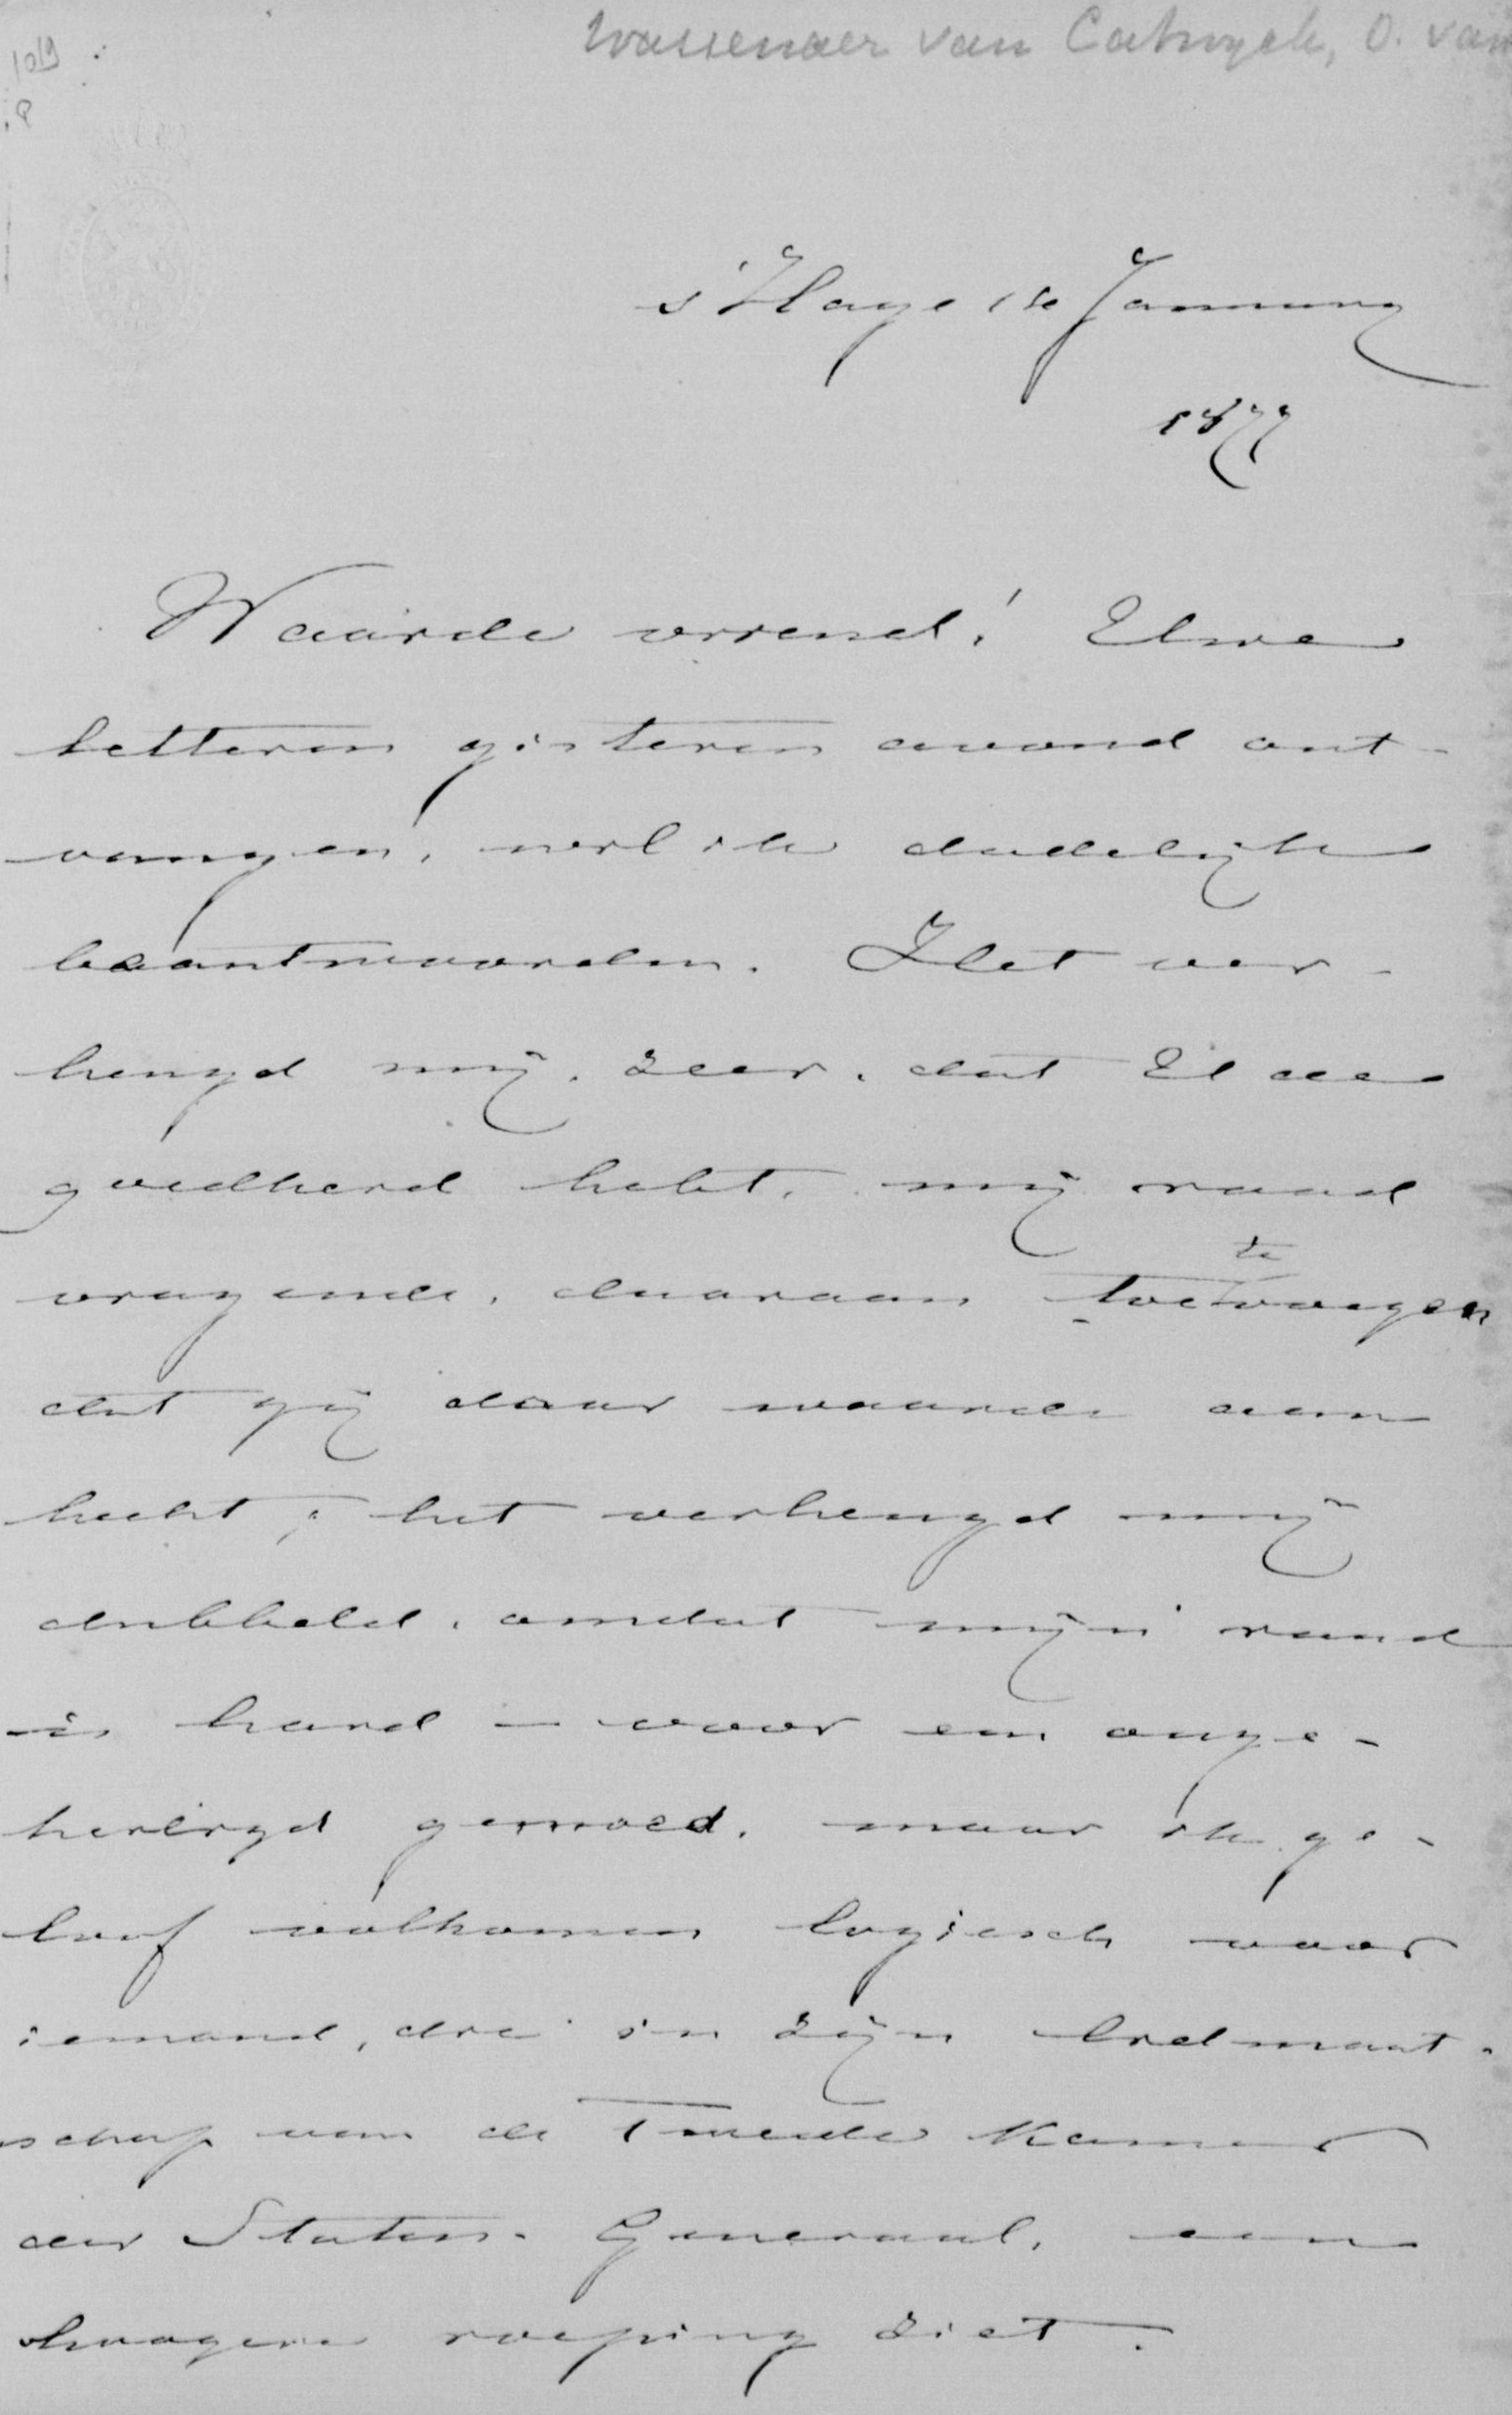 Wassenaer van Catwyck, O. van
s'Hage 18 January
1877
Waarde vriend! Uwe
letteren gisteren avond ont-
vangen, wil ik dadelijk
beantwoorden. Het ver-
heugd mij zeer, dat U de
goedheid hebt, mij raad
vragende, daaraan toe te voegen
dat gij daar waarde aan
hecht; het verheugd mij
dubbeld, omdat mijn raad
is hard – voor een onge-
heiligd gemoed, maar ik ge-
loof volkomen logiesch voor
iemand, die in zijn lidmaat-
schap van de Tweede Kamer
der Staten-Generaal, een
hoogere roeping ziet.